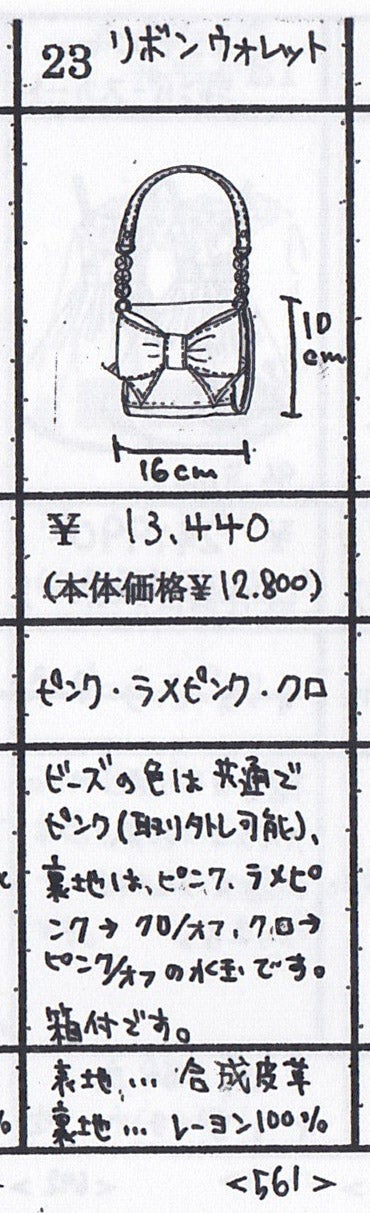 23 リボンウォレット
10
cm
16cm
¥ 13,440
(本体価格¥12.800)
ピンク・ラメピンク・クロ
ビーズの色は共通で
ピンク(取り外し可能)、
裏地は、ピンク、ラメピ
ンク→クロ/オフ、クロ→
ピンク/オフの水玉です。
箱付です。
表地… 合成皮革
裏地… レーヨン100%
<561>